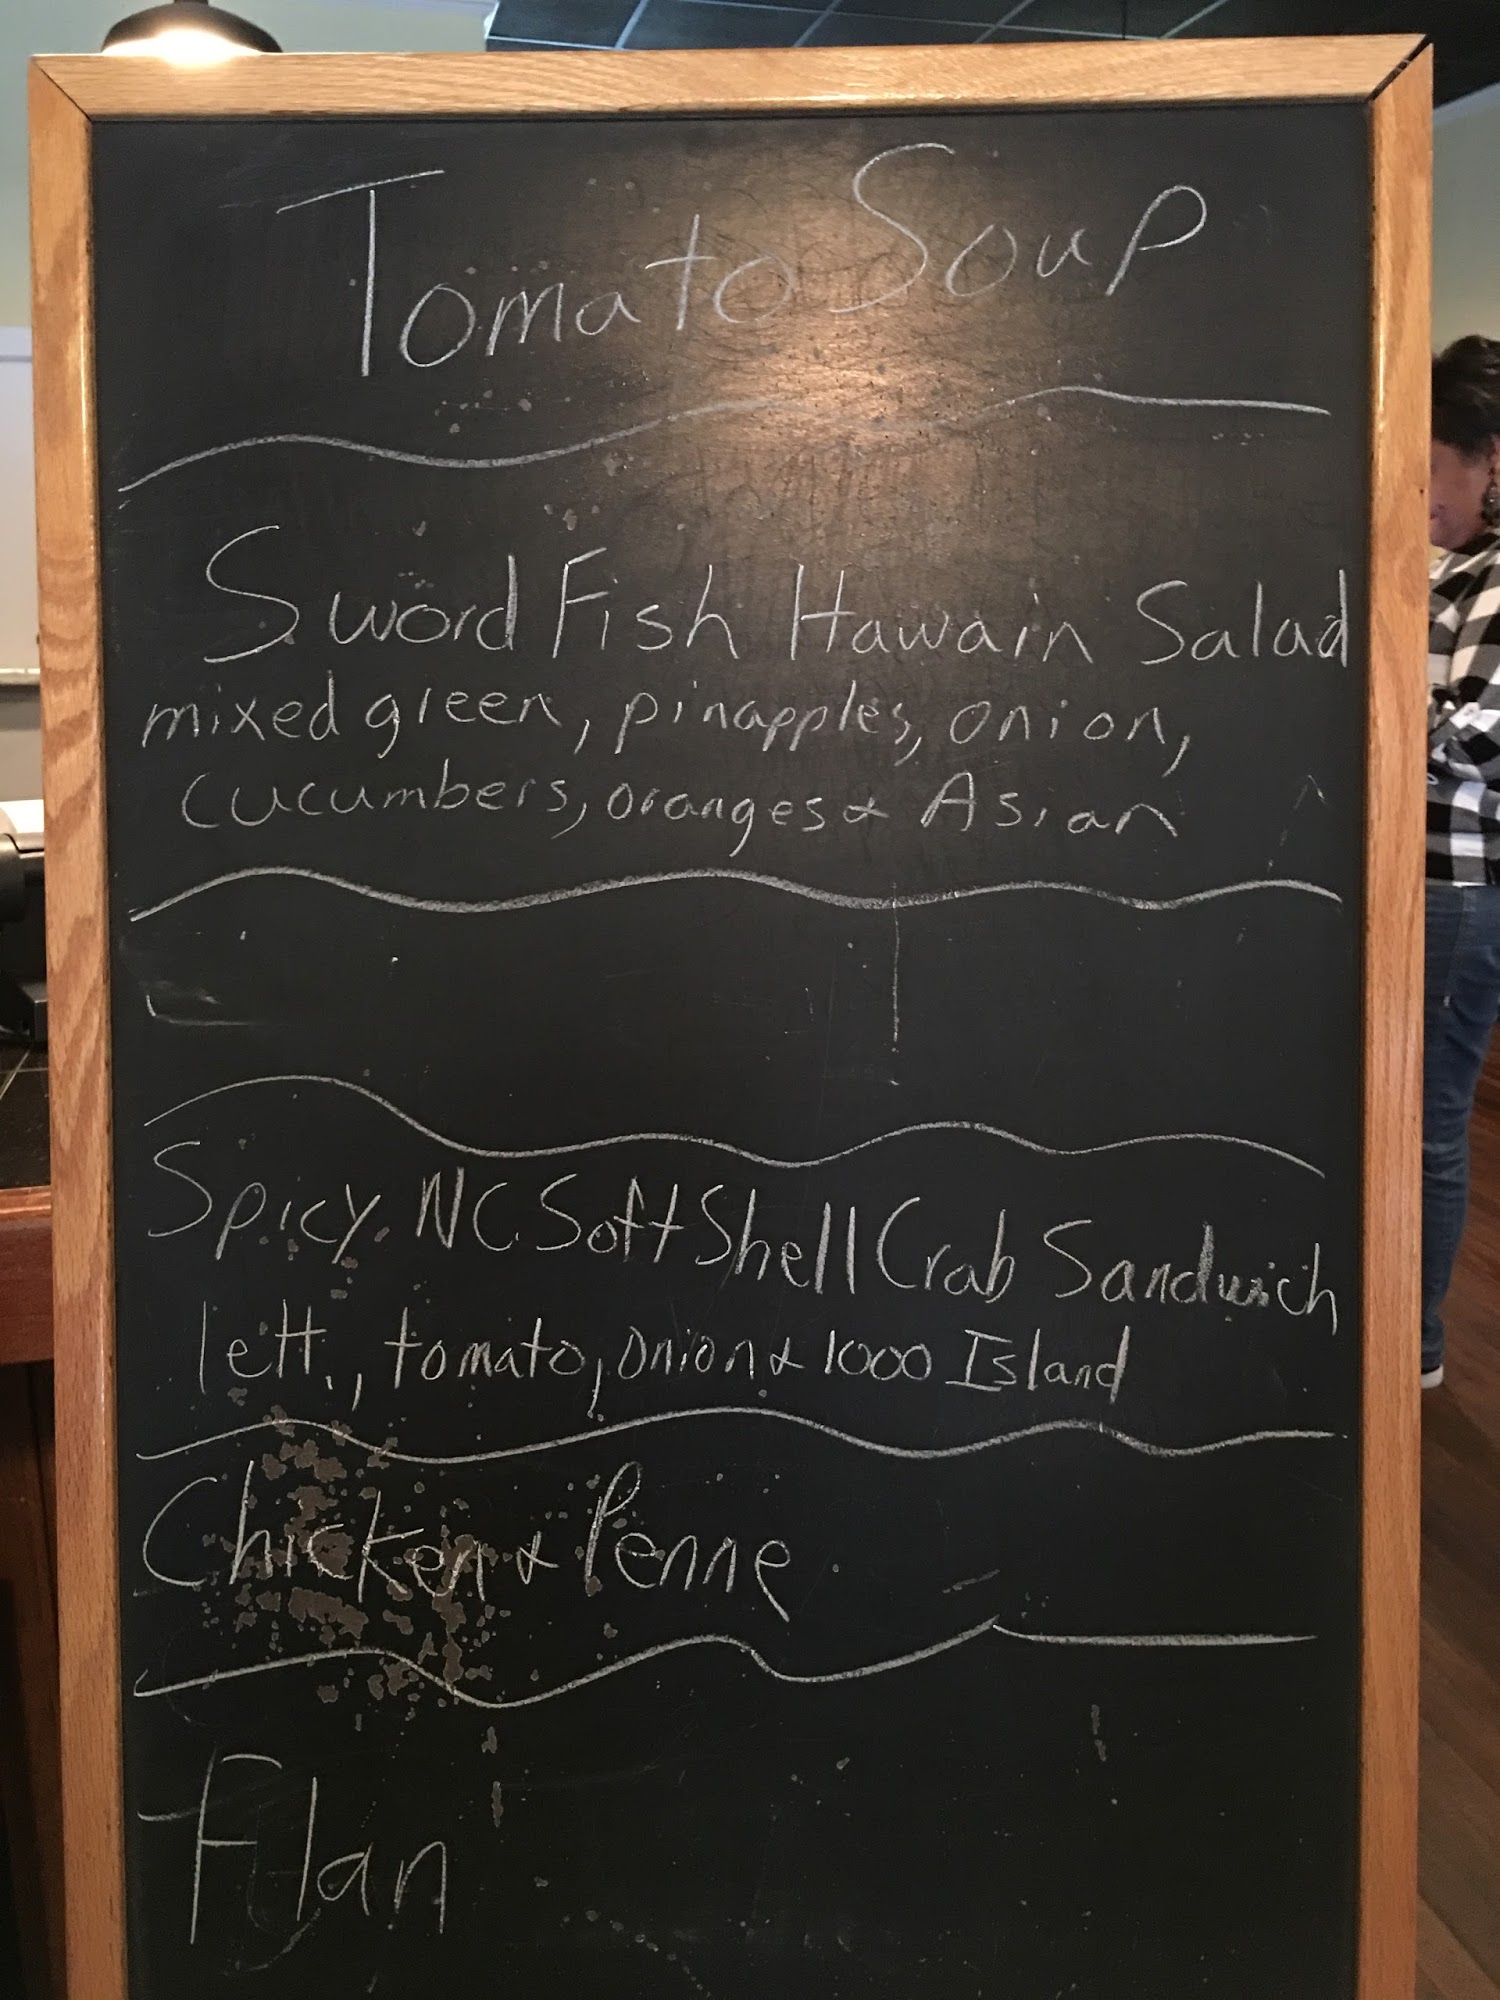 Tomato Soup
Sword Fish Hawain Salad
mixed green, pinapples, onion,
cucumbers, oranges & Asian
Spicy NC Soft Shell Crab Sandwich
lett., tomato, onion & 1000 Island
Chicken & Penne
Flan